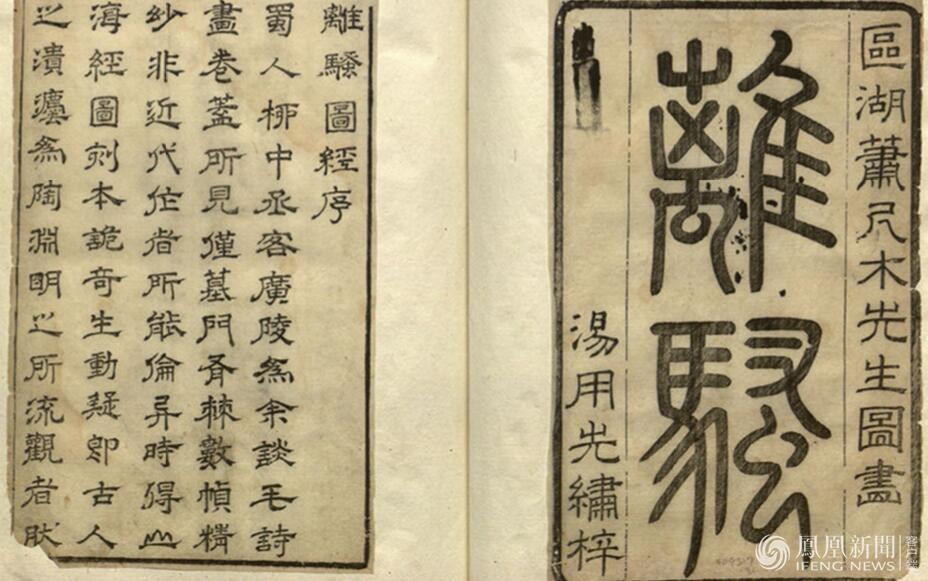 區湖蕭尺木先生圖畫
離騷
湯用先繡梓
離騷圖經序
蜀人柳中丞客廣陵為余談毛詩
畫卷蓋所見僅墓門有棘數幀精
玅非近代作者所能倫异時得山
海經圖刻本詭奇生動疑即古人
之為陶淵明之所流觀者肰
鳳凰新聞
IFENG NEWS